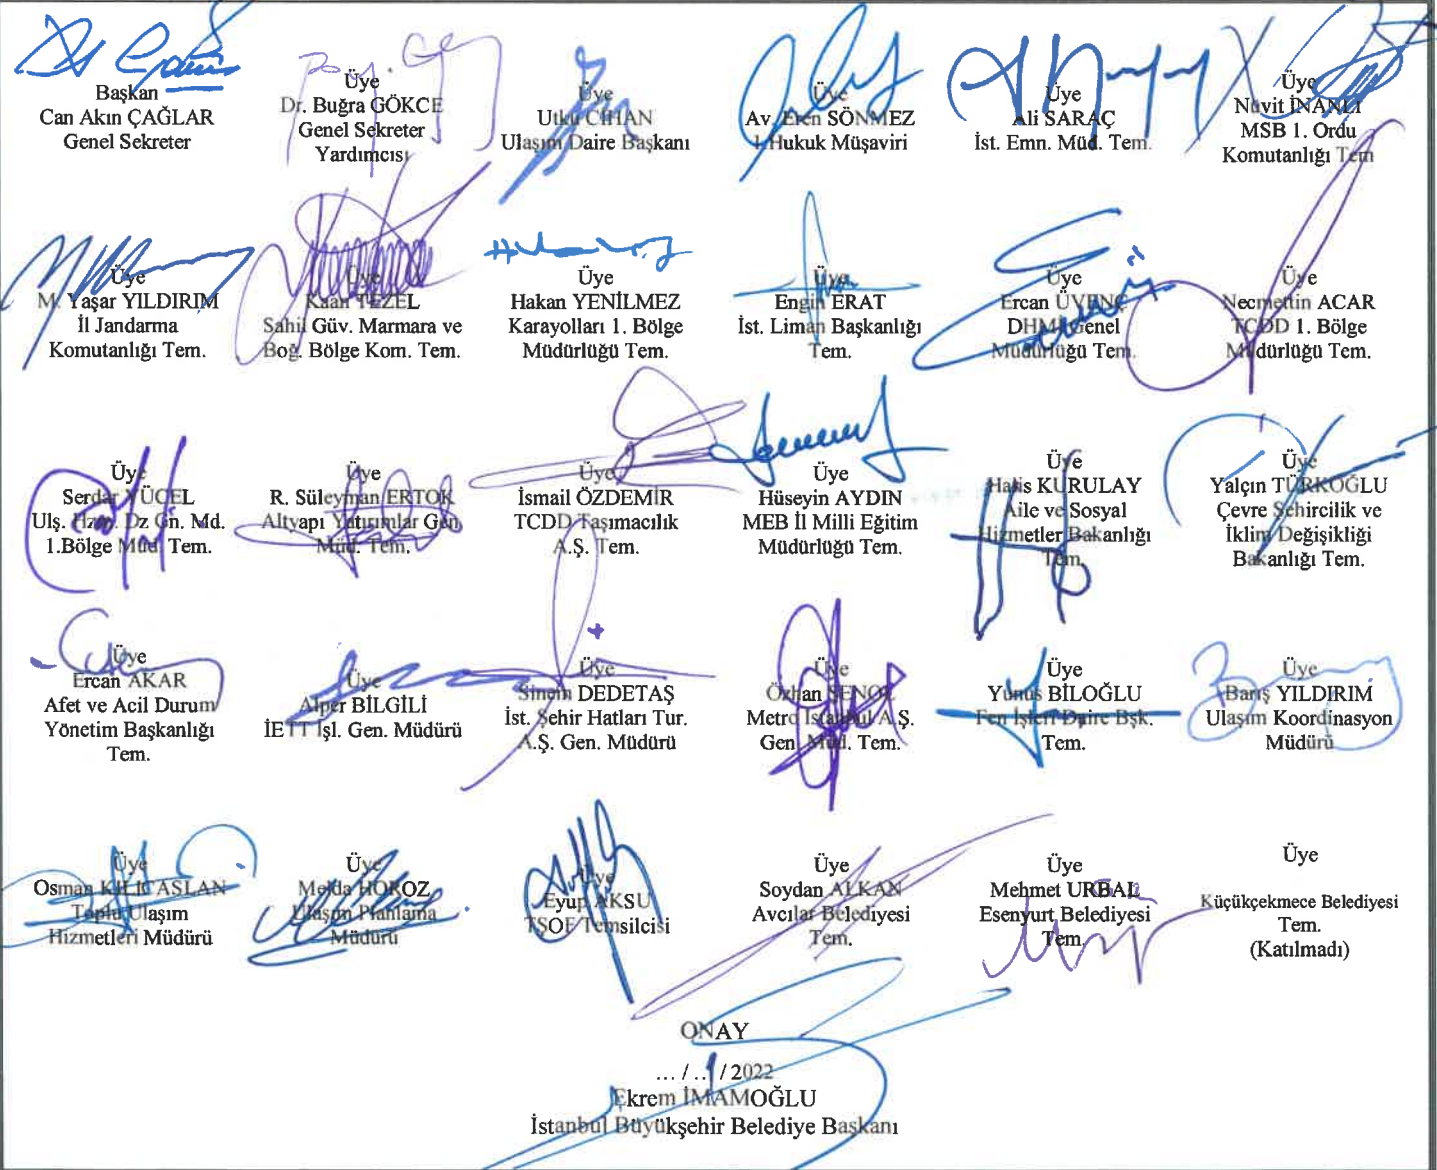 Başkan
Can Akın ÇAĞLAR
Genel Sekreter
Üye
Dr. Buğra GÖKCE
Genel Sekreter
Yardımcısı
Üye
Utku CİHAN
Ulaşım Daire Başkanı
Üye
Av. Eren SÖNMEZ
1.Hukuk Müşaviri
Üye
Ali SARAÇ
İst. Emn. Müd. Tem.
Üye
Nuvit İNANLI
MSB 1. Ordu
Komutanlığı Tem
Üye
M. Yaşar YILDIRIM
İl Jandarma
Komutanlığı Tem.
Üye
Kaan TEZEL
Sahil Güv. Marmara ve
Boğ. Bölge Kom. Tem.
Üye
Hakan YENİLMEZ
Karayolları 1. Bölge
Müdürlüğü Tem.
Üye
Engin ERAT
İst. Liman Başkanlığı
Tem.
Üye
Ercan ÜVENÇ
DHMİ Genel
Müdürlüğü Tem.
Üye
Necmettin ACAR
TCDD 1. Bölge
Müdürlüğü Tem.
Üye
Serdar YÜCEL
Ulş. Hzm. Dz Gn. Md.
1.Bölge Müd. Tem.
Üye
R. Süleyman ERTOK
Altyapı Yatırımlar Gen.
Müd. Tem.
Üye
İsmail ÖZDEMİR
TCDD Taşımacılık
A.Ş. Tem.
Üye
Hüseyin AYDIN
MEB İl Milli Eğitim
Müdürlüğü Tem.
Üye
Halis KURULAY
Aile ve Sosyal
Hizmetler Bakanlığı
Tem.
Üye
Yalçın TÜRKOĞLU
Çevre Şehircilik ve
İklim Değişikliği
Bakanlığı Tem.
Üye
Ercan AKAR
Afet ve Acil Durum
Yönetim Başkanlığı
Tem.
Üye
Alper BİLGİLİ
İETT İşl. Gen. Müdürü
Üye
Sinem DEDETAŞ
İst. Şehir Hatları Tur.
A.Ş. Gen. Müdürü
Üye
Özhan ŞENOL
Metro İstanbul A.Ş.
Gen. Müd. Tem.
Üye
Yunus BİLOĞLU
Fen İşleri Daire Bşk.
Tem.
Üye
Barış YILDIRIM
Ulaşım Koordinasyon
Müdürü
Üye
Osman KILIÇASLAN
Toplu Ulaşım
Hizmetleri Müdürü
Üye
Melda HOROZ
Ulaşım Planlama
Müdürü
Üye
Eyup AKSU
TŞOF Temsilcisi
Üye
Soydan ALKAN
Avcılar Belediyesi
Tem.
Üye
Mehmet URBAL
Esenyurt Belediyesi
Tem.
Üye
Küçükçekmece Belediyesi
Tem.
(Katılmadı)
ONAY
... / .. / 2022
Ekrem İMAMOĞLU
İstanbul Büyükşehir Belediye Başkanı